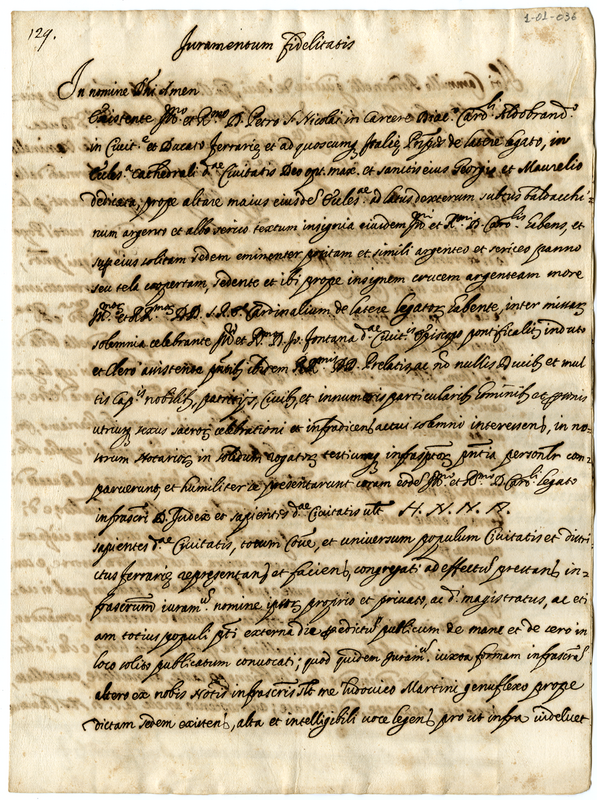 129.
1-01-036
Juramentum fidelitatis
In nomine Dni Amen
Existente Illmo et Rmo D. Petro S. Nicolai in Carcere Diac. Cardli Aldobrando
in Civit.e et Ducato Ferrarie et ad quoscumq Italie Prnpes de latere legato, in
Eccles.a cathedrali dae Civitatis Deo opt. max. et sanctis eius Georgio et Maurelio
dedicata, prope altare maius eiusde Eccles.ae ad latus dexterum subtus baldacchi=
num argenteo et albo serico textum insignia eiusdem Illmi et Rmi D. Cardlis habens, et
super eius solitam sedem eminenter positam et simili argenteo et serico panno
seu tela coopertam, sedente et ibi prope insignem crucem argenteam more
Illmor et RRmor DD. S. R. E. Cardinalium de latere legator habente, inter missar
solemnia celebrante Illri et Rmo D. Jo. Fontana dae Civit.is Episcopo pontificalib induto
et Clero assistente pntib ibidem RRmis DD. Prelatis, ac no nullis Ducib et mul
tis Cap.is nobilib, patritijs, Civib, et innumeris particularib hominib et personis
utriusq sexus sacror celebrationi et infradicendo actui solemnio interessen, in no=
strum Notarior in solidum rogator testiumq infrasptor pntia personlr com=
paruerunt, et humiliter se presentarunt coram eode Illmo et Rmo D. Cardli legato
infrascri D. Judex et sapientes dae Civitatis ult H. N. N. N.
sapientes dae Civitatis, totum Coe, et universum populum Civitatis et distri=
ctus Ferrarie representan et facien, congregati ad effectu prestan in=
frascrum iuram.m nomine ipsor proprio et privato, ac d. magistratus, ac eti
am totius populi pti externa die p edictu publicum de mane et de sero in
loco solito publicatum convocati; quod quidem Juram.m iuxta formam infrascra
altero ex nobis Notis infrascris vlt me Ludovico Martini genuflexo prope
dictam sedem existen, alta et intelligibili voce legen pro ut infra videlicet